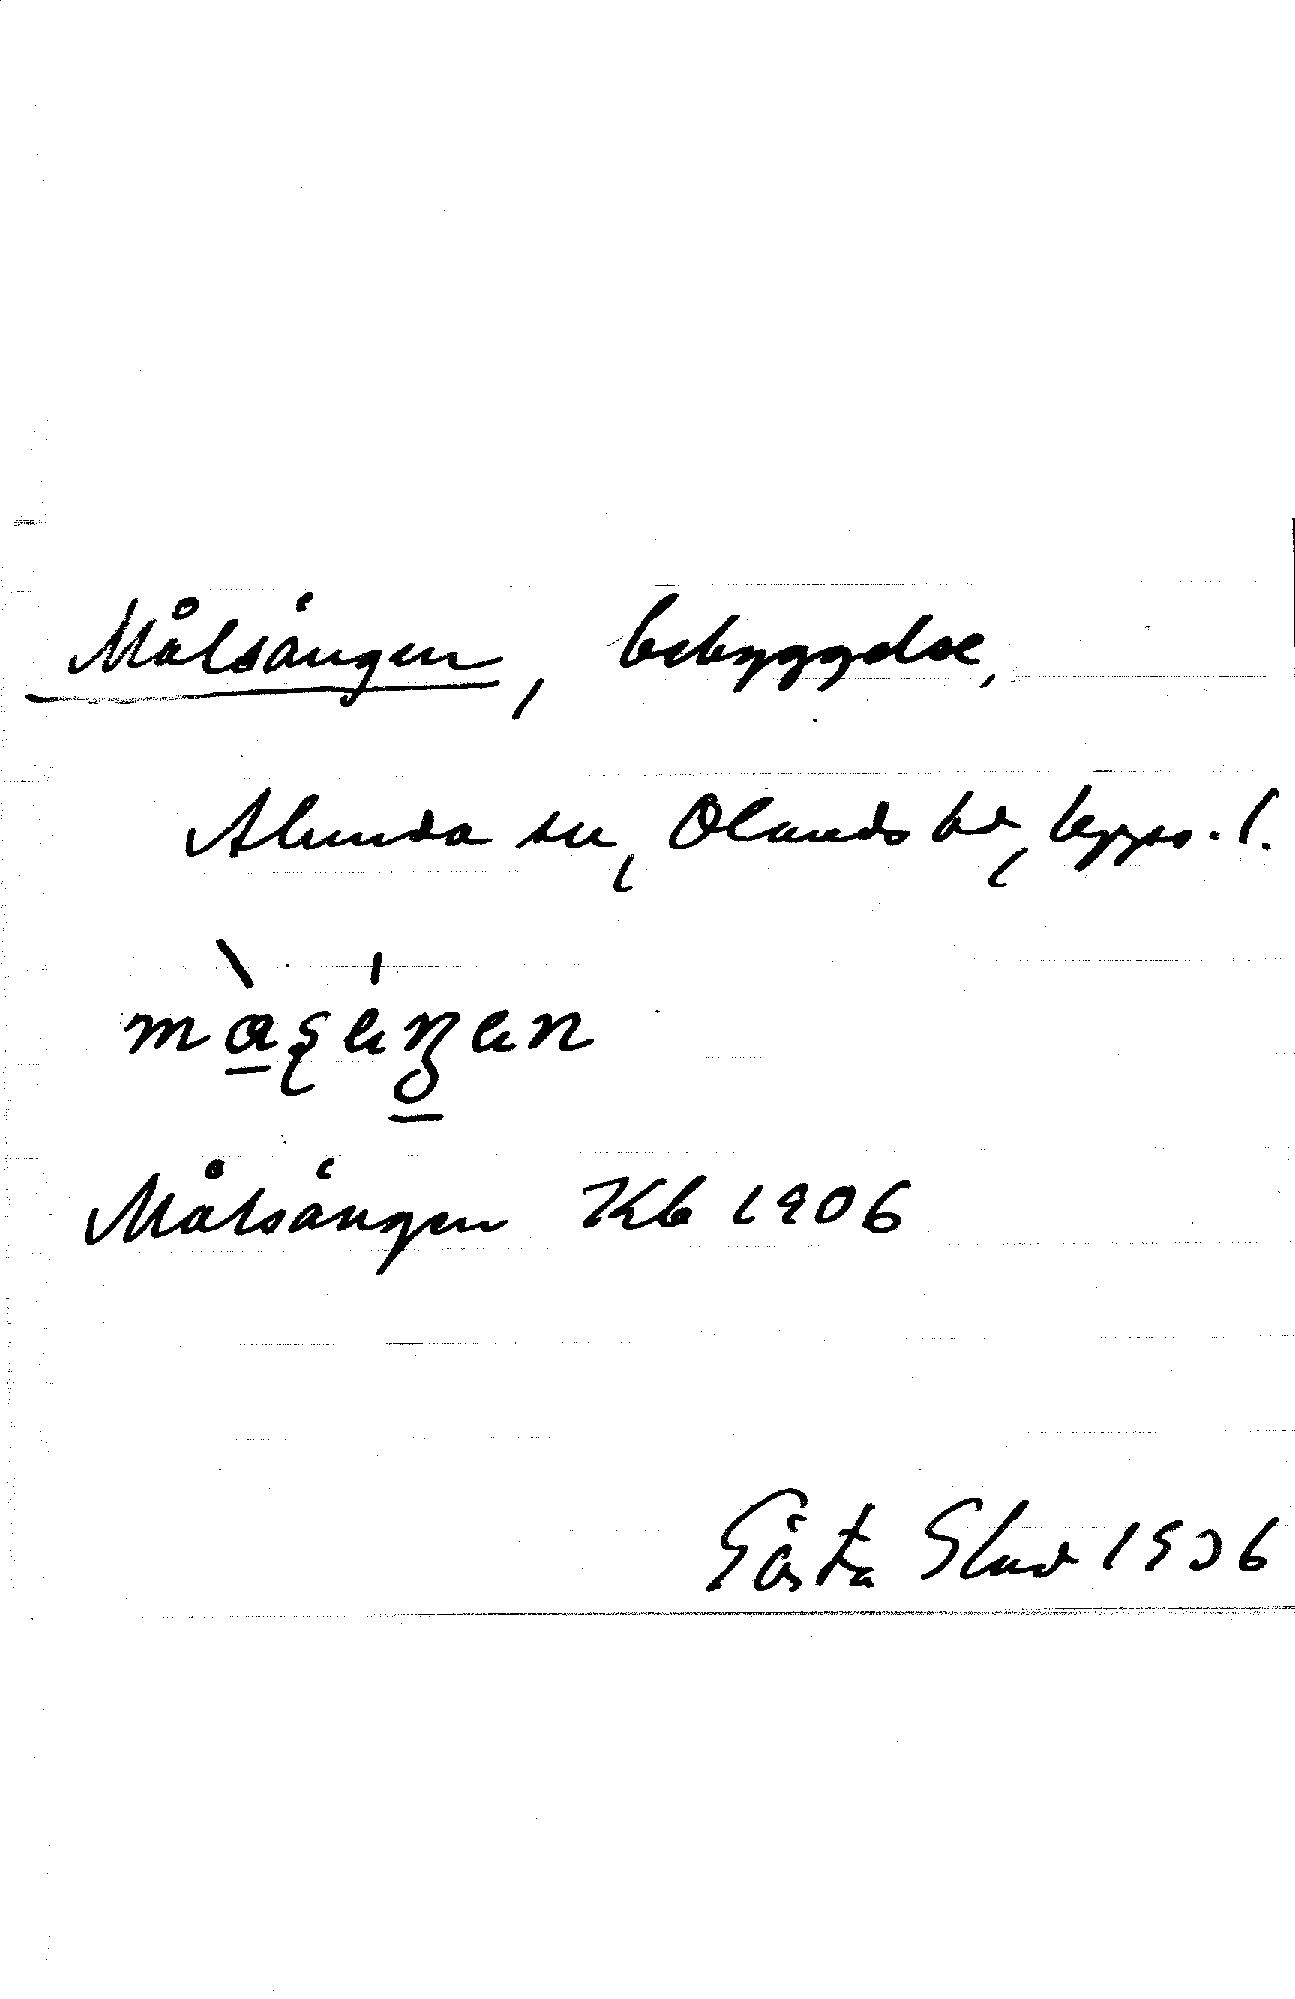 Målsängen, bebyggelse,
Alunda sn, Olands hd, Upps. l.
Målsängen Kb 1906
Gösta 1936